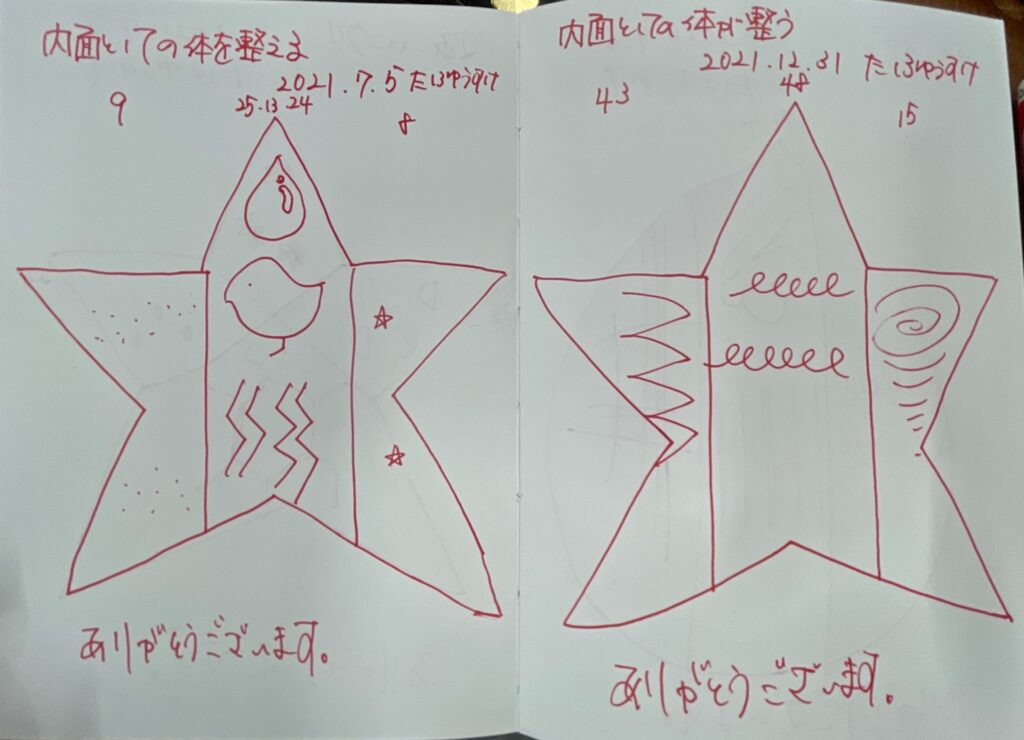 内面としての体を整えま
2021.7.5 たにゆうすけ
9
25.13.24
8
ありがとうございます。
内面としての体が整う
2021.12.31 たにゆうすけ
43
48
15
ありがとうございます。